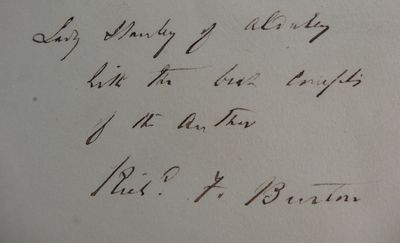 Lady Stanley of Alderley
with the best compts
of the Author
Richd. F. Burton